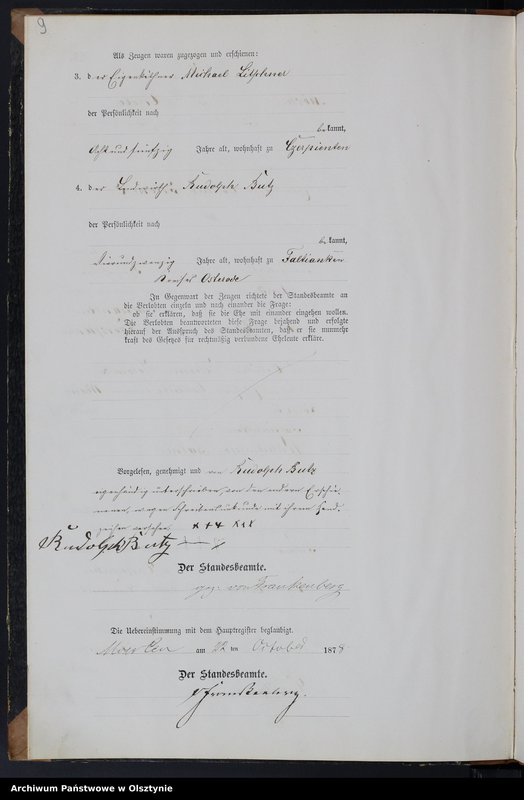 9
Als Zeugen waren zugezogen und erschienen:
3. der Eigenkäthner Michael
der Persönlichkeit nach
bekannt,
Acht und fünfzig Jahre alt, wohnhaft zu
4. der Rudolph Butz
der Persönlichkeit nach
bekannt,
Jahre alt, wohnhaft zu Faltianken
Kreises Osterode
In Gegenwart der Zeugen richtete der Standesbeamte an
die Verlobten einzeln und nach einander die Frage:
ob sie erklären, daß sie die Ehe mit einander eingehen wollen.
Die Verlobten beantworteten diese Frage bejahend und erfolgte
hierauf der Ausspruch des Standesbeamten, daß er sie nunmehr
kraft des Gesetzes für rechtmäßig verbundene Eheleute erkläre.
Vorgelesen, genehmigt und von Rudolph Butz
eigenhändig unterschrieben, von den andern Erschie-
nenen, wegen Schreibensunkunde mit ihrem Hand-
zeichen versehen. x x x x x x
Rudolph Butz
Der Standesbeamte.
gez. von Frankenberg
Die Uebereinstimmung mit dem Hauptregister beglaubigt.
am 22 ten October 1878
Der Standesbeamte.
vFrankenberg.
Archiwum Państwowe w Olsztynie